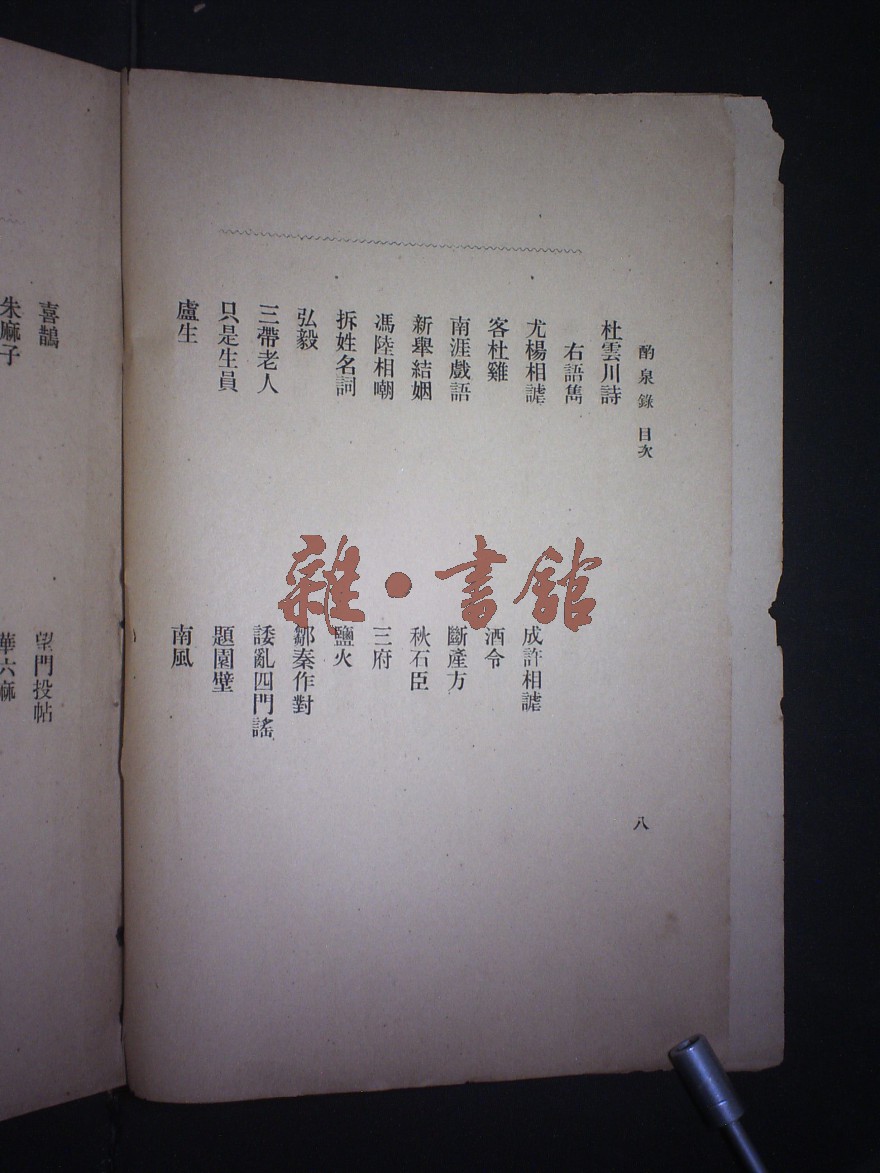 酌泉錄 目次
八
杜雲川詩
右語雋
尤楊相謔
成許相謔
客杜雞
酒令
南涯戲語
斷產方
新舉結姻
秋石臣
馮陸相嘲
三府
拆姓名詞
鹽火
弘毅
鄒秦作對
三帶老人
諉亂四門謠
只是生員
題園壁
盧生
南風
喜鵲
望門投帖
朱麻子
華六麻
雜·書館